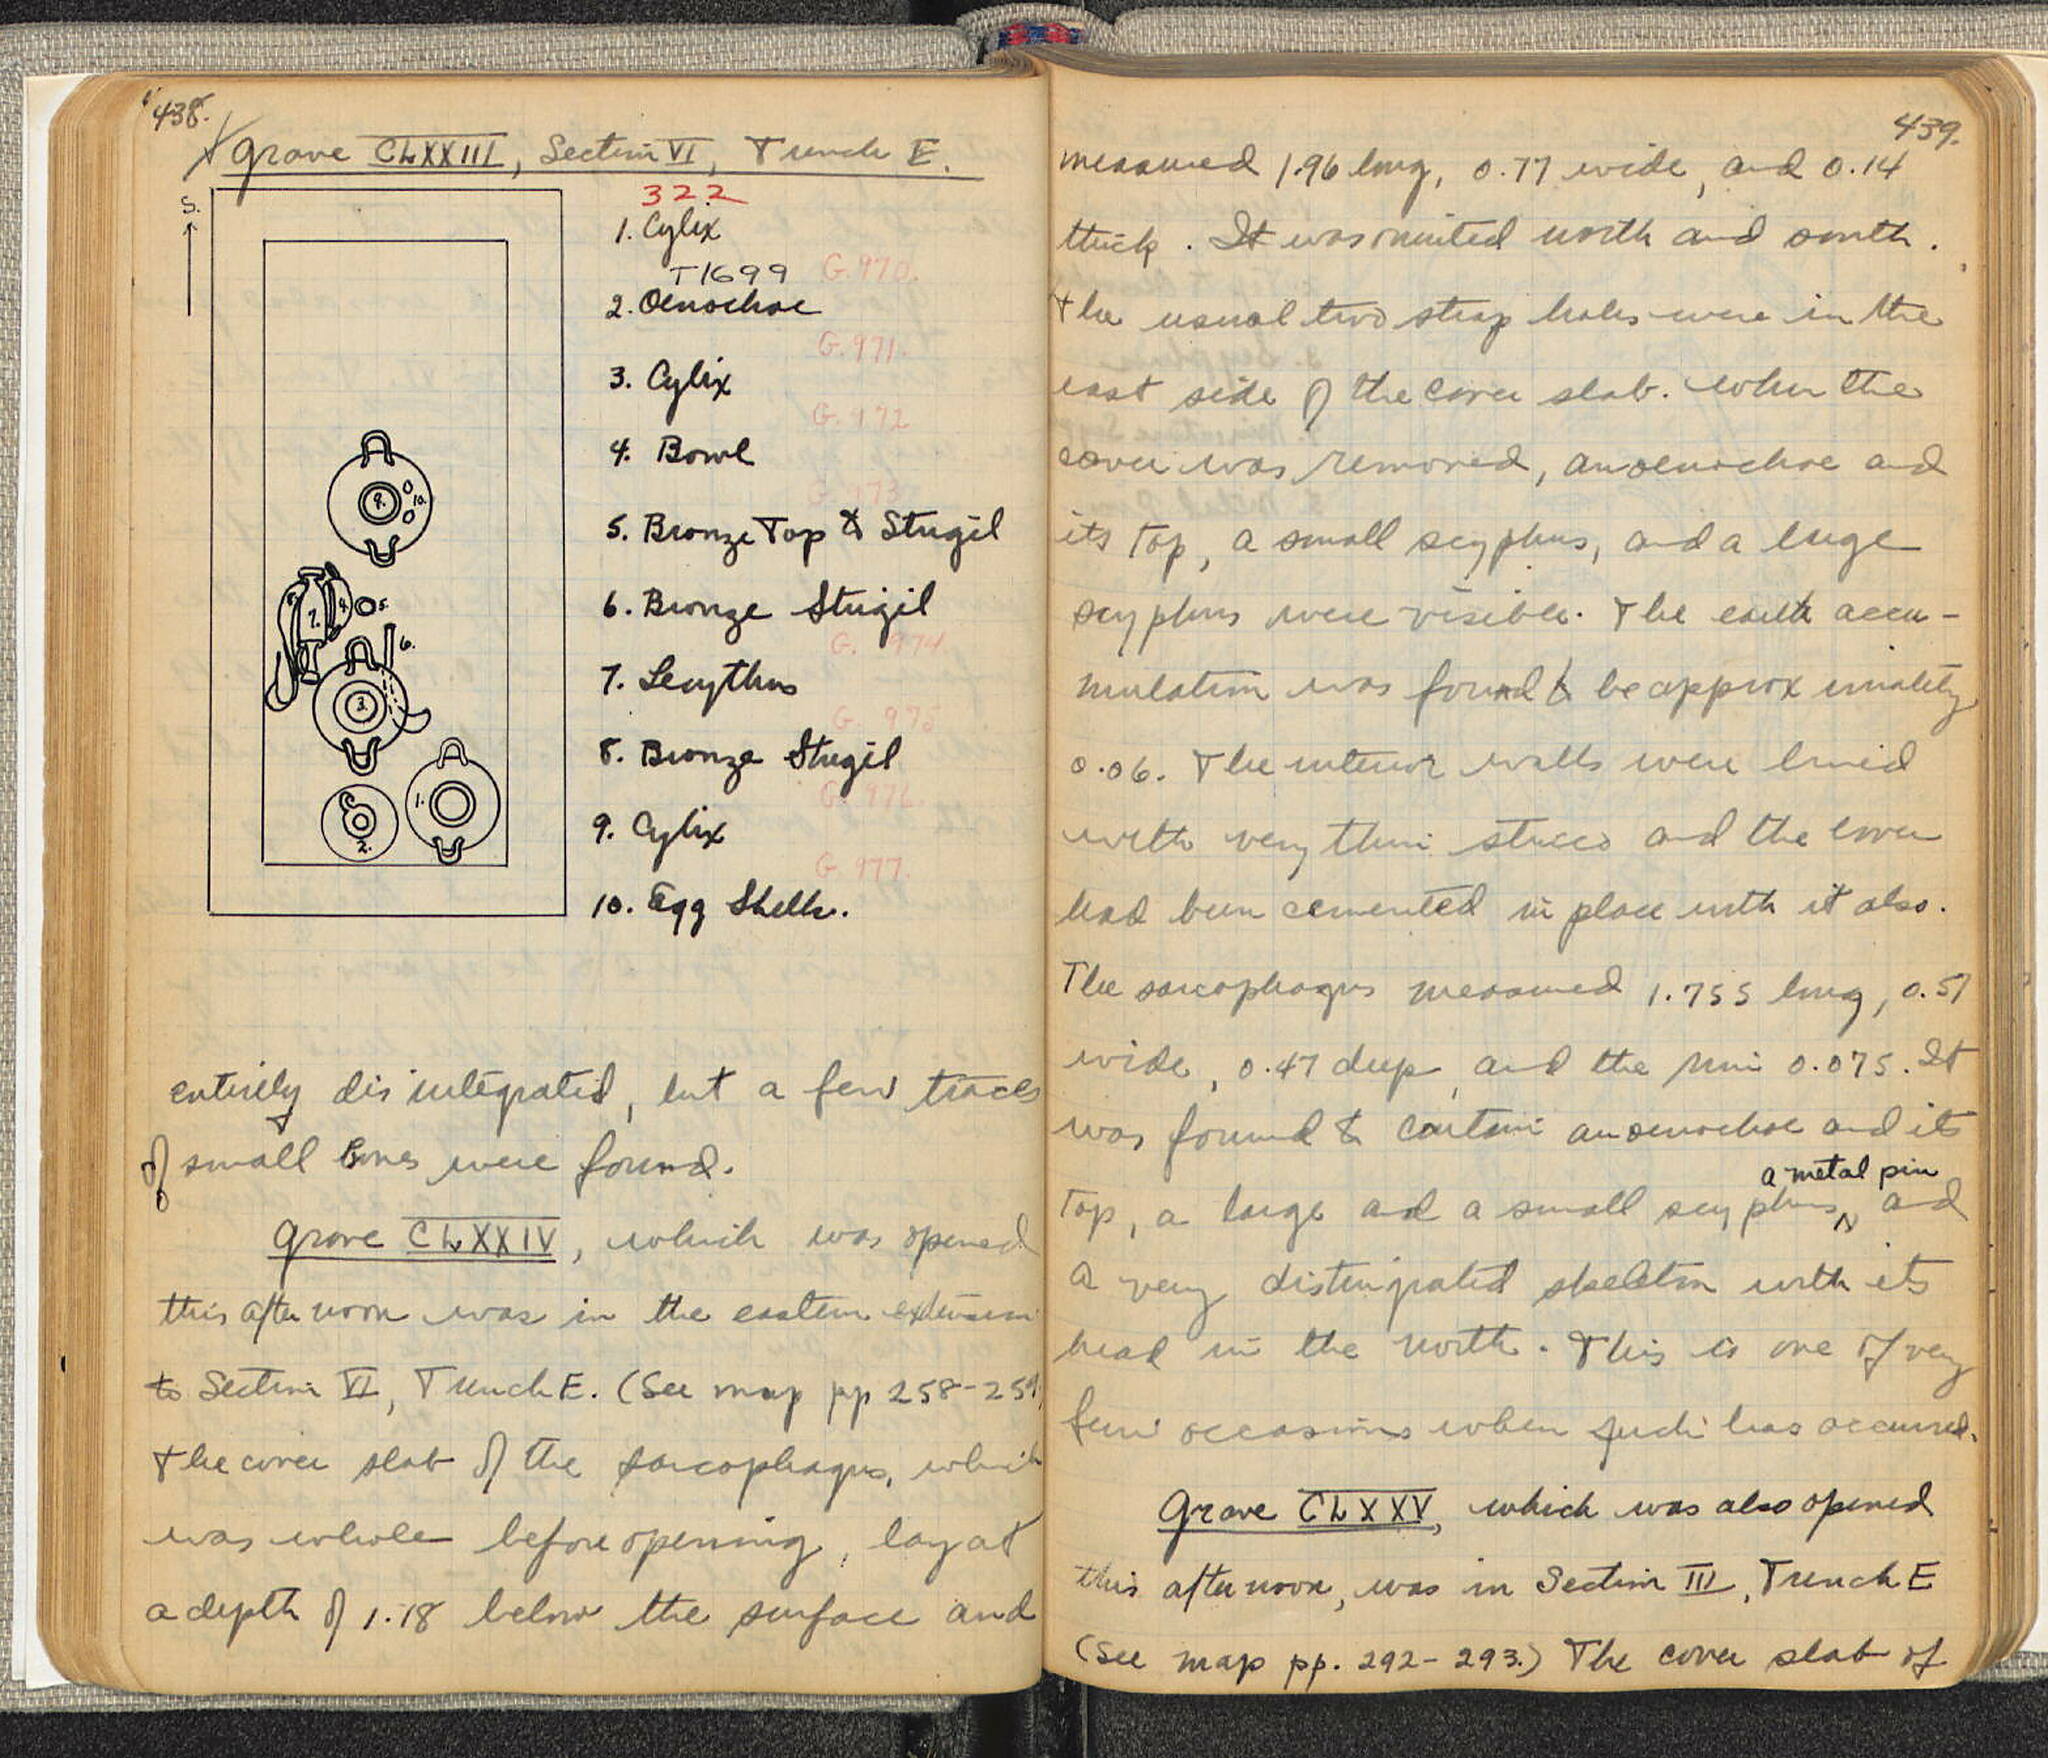 438.
Grave CLXXIII, Section VI, Trench E.
S.
322
1. Cylix
T1699 G.970.
2. Oenochoe
G.971.
3. Cylix
G.972
4. Bowl
G.973
5. Bronze Top to Strigil
6. Bronze Strigil
G. 974
7. Lecythus
G. 975
8. Bronze Strigil
G. 976.
9. Cylix
G 977.
10. Egg Shells.
9.
10.
8.
7.
4.
5.
6.
3.
1.
2.
entirely disintegrated, but a few traces
of small bones were found.
Grave CLXXIV, which was opened
this afternoon was in the eastern extension
to Section VI, Trench E. (See map pp 258-259)
The cover slab of the sarcophagus, which
was whole before opening, lay at
a depth of 1.18 below the surface and
439.
measured 1.96 long, 0.77 wide, and 0.14
thick. It was oriented north and south.
The usual two strap holes were in the
east side of the cover slab. When the
cover was removed, an oenochoe and
its top, a small scyphus, and a large
scyphus were visible. The earth accu-
mulation was found to be approximately
0.06. The interior walls were lined
with very thin stucco and the cover
had been cemented in place with it also.
The sarcophagus measured 1.755 long, 0.51
wide, 0.47 deep, and the rim 0.075. It
was found to contain an oenochoe and its
a metal pin
top, a large and a small scyphus, and
a very distingrated skeleton with its
head in the north. This is one of very
few occasions when such has occurred.
Grave CLXXV, which was also opened
this afternoon, was in Section III, Trench E
(See map pp. 292-293.) The cover slab of